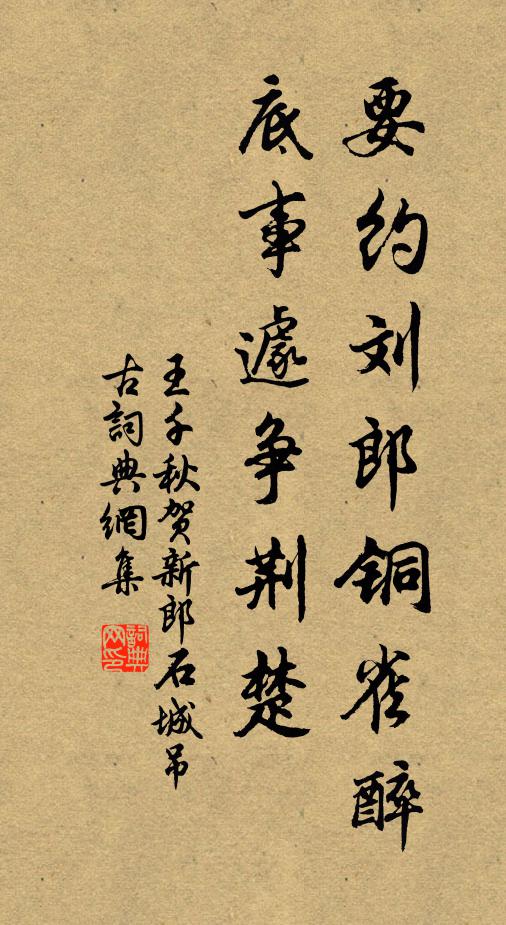 要约刘郎铜雀醉
底事遽争荆楚
王千秋贺新郎石城吊
古詞典網集
詞典
网印